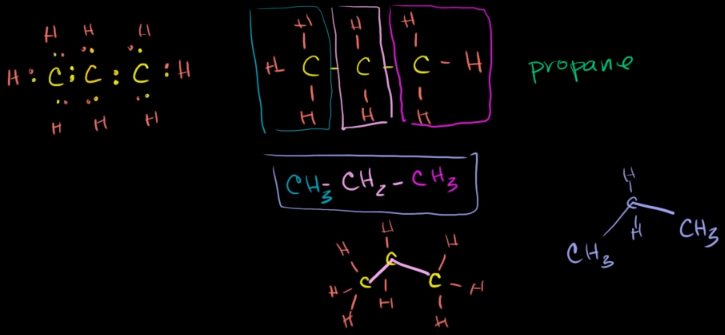 H H H
H : C : C : C : H
H H H
H H H
H - C - C - C - H
H H H
propane
CH₃ - CH₂ - CH₃
H
H C H
H - C H C - H
H H
H
C
H
CH₃ CH₃